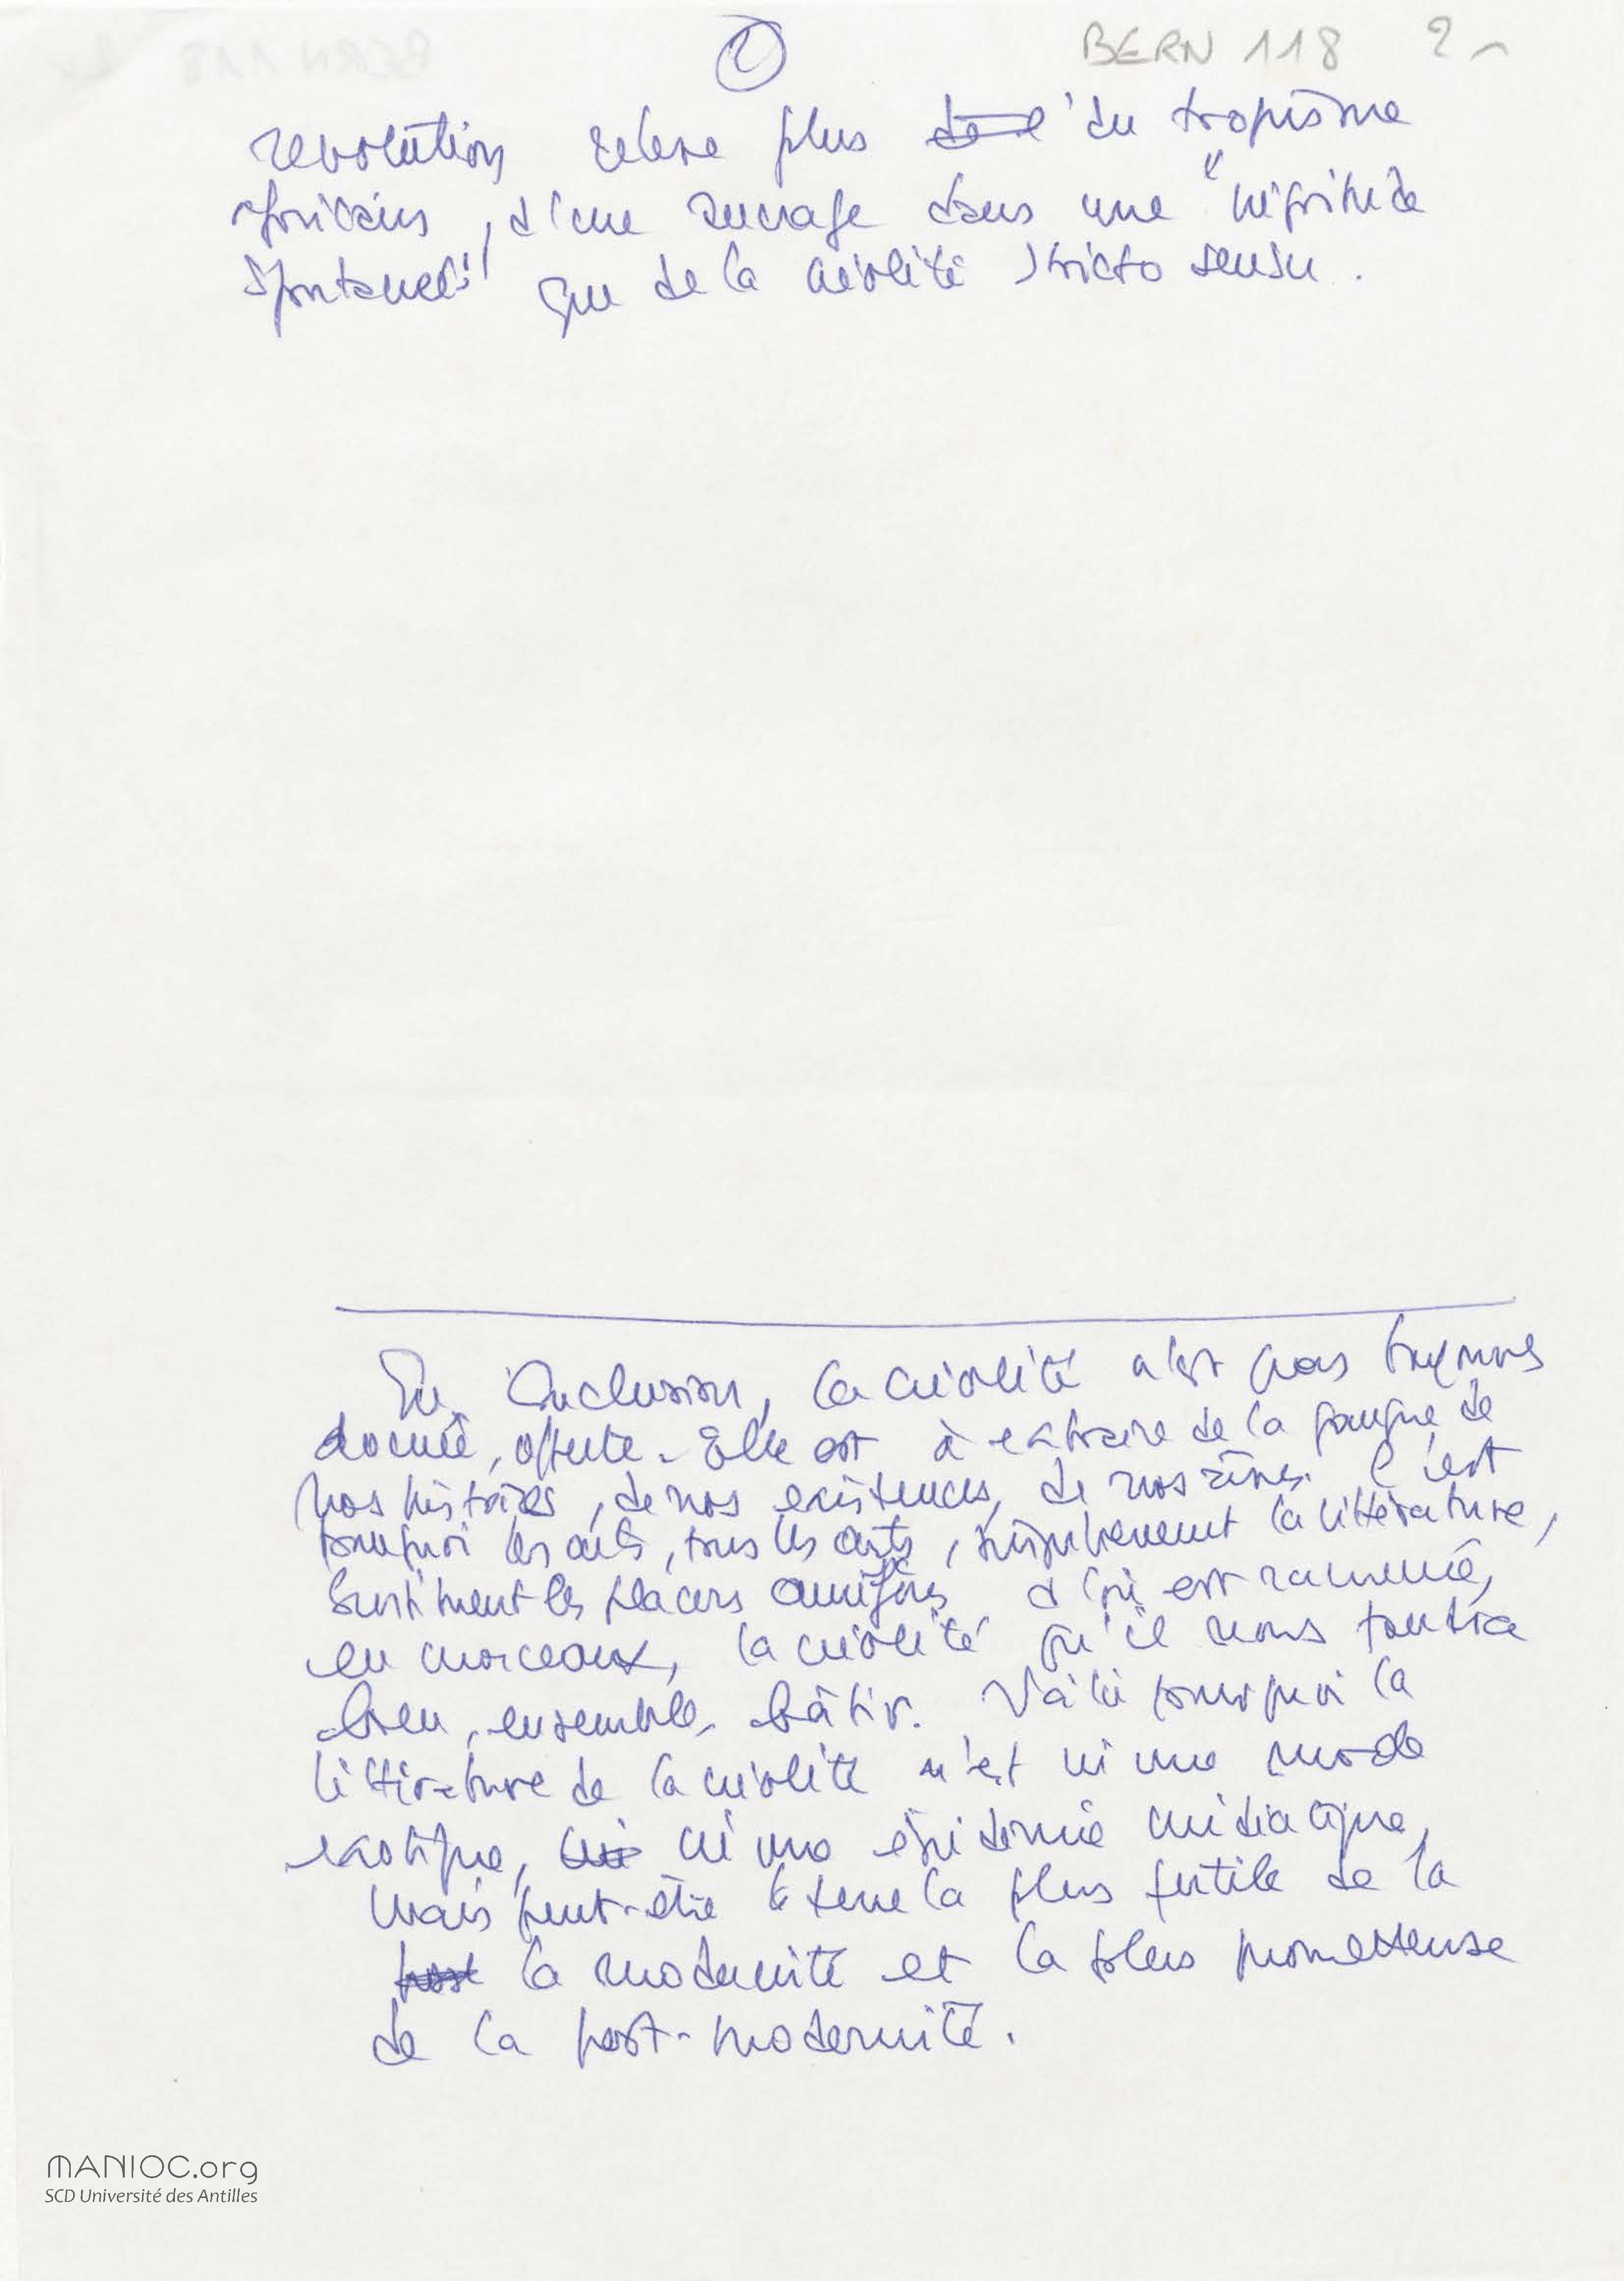 2
BERN 118 2
révolution relève plus du tropisme
africain, d'un ancrage dans une "négritude
spontanée" que de la créolité stricto sensu.
En conclusion, la créolité n'est pas toujours
donnée, offerte. Elle est à extraire de la gangue de
nos histoires, de nos existences, de nos rêves. C'est
pourquoi les arts, tous les arts, singulièrement la littérature,
sont les placers aurifères d'où est ramenée,
en morceaux, la créolité qu'il nous faudra
bien, ensemble, bâtir. Voilà pourquoi la
littérature de la créolité n'est ni une mode
exotique, ni une épidémie médiatique,
mais peut-être la terre la plus fertile de la
la modernité et la plus prometteuse
de la post-modernité.
MANIOC.org
SCD Université des Antilles